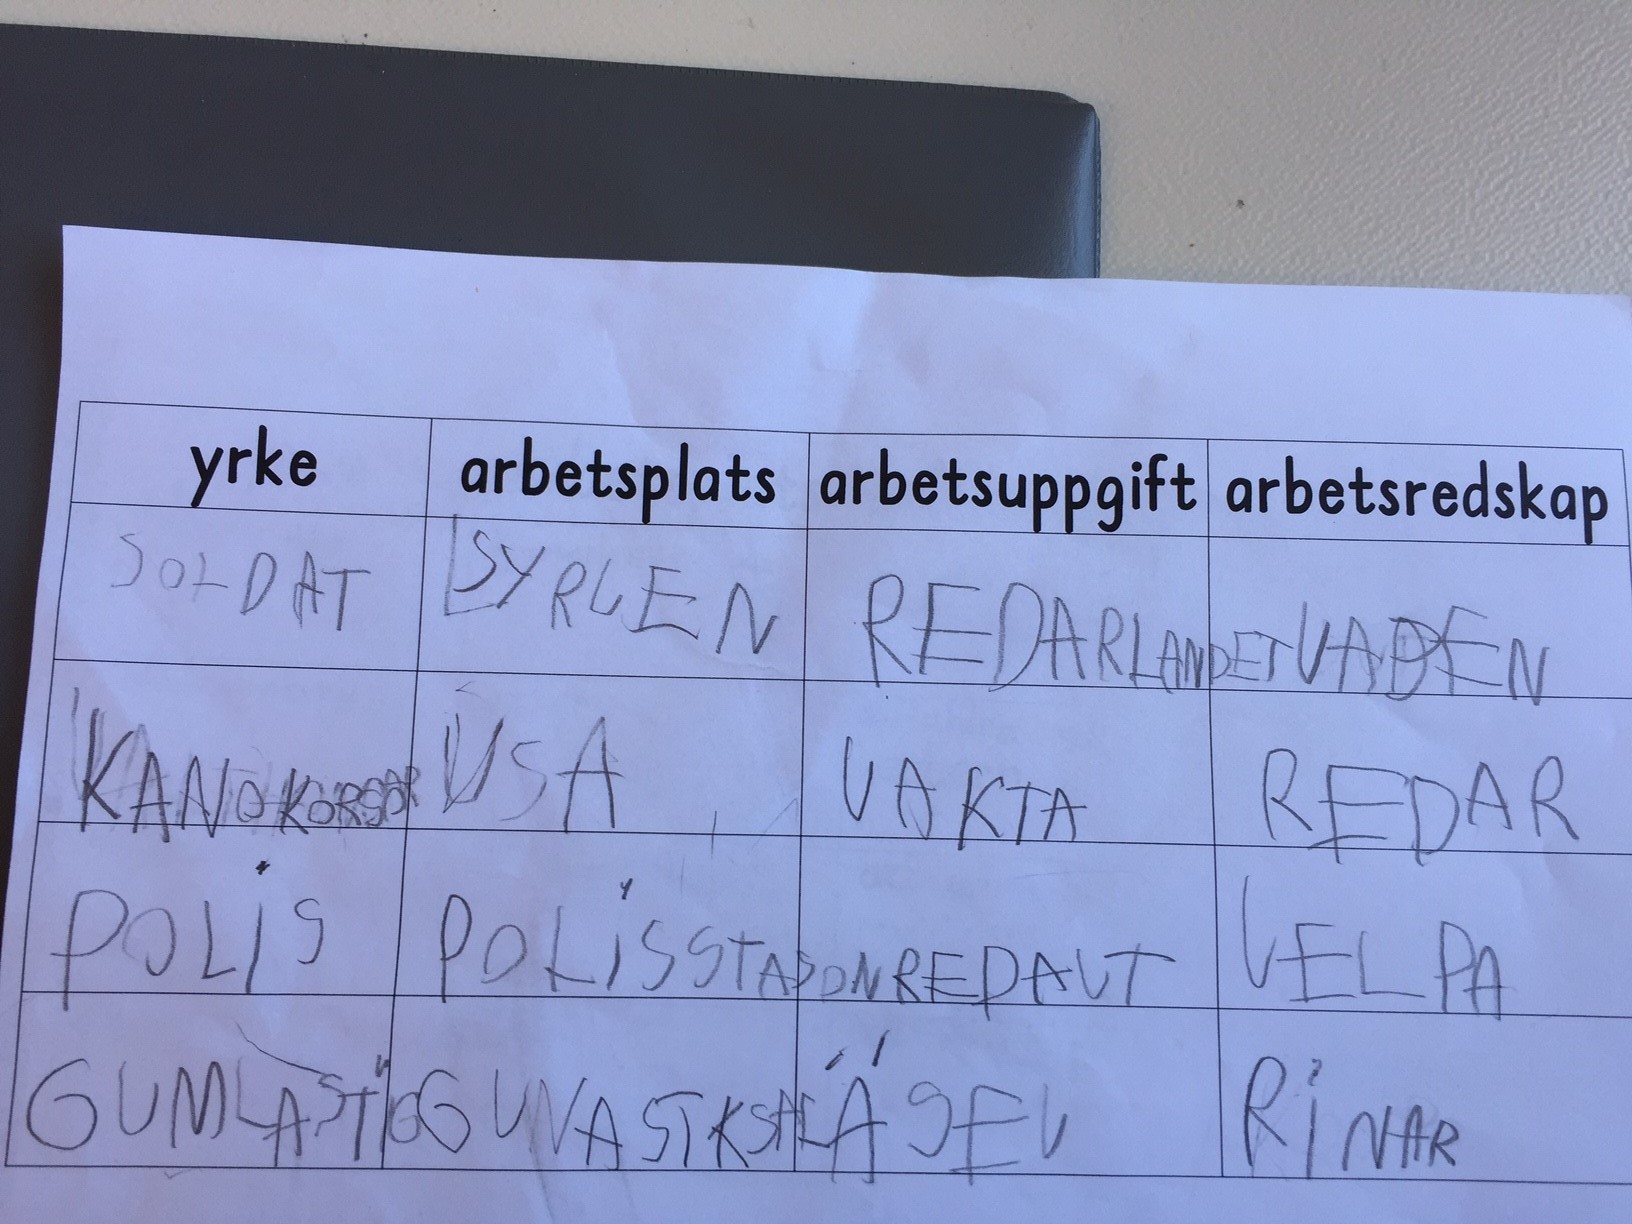 yrke arbetsplats arbetsuppgift arbetsredskap
SOLDAT SYRLEN REDARLANDET VADEN
USA VAKTA REDAR
POLIS POLISSTASON REDAUT VELPA
GUMLASTIG RINAR